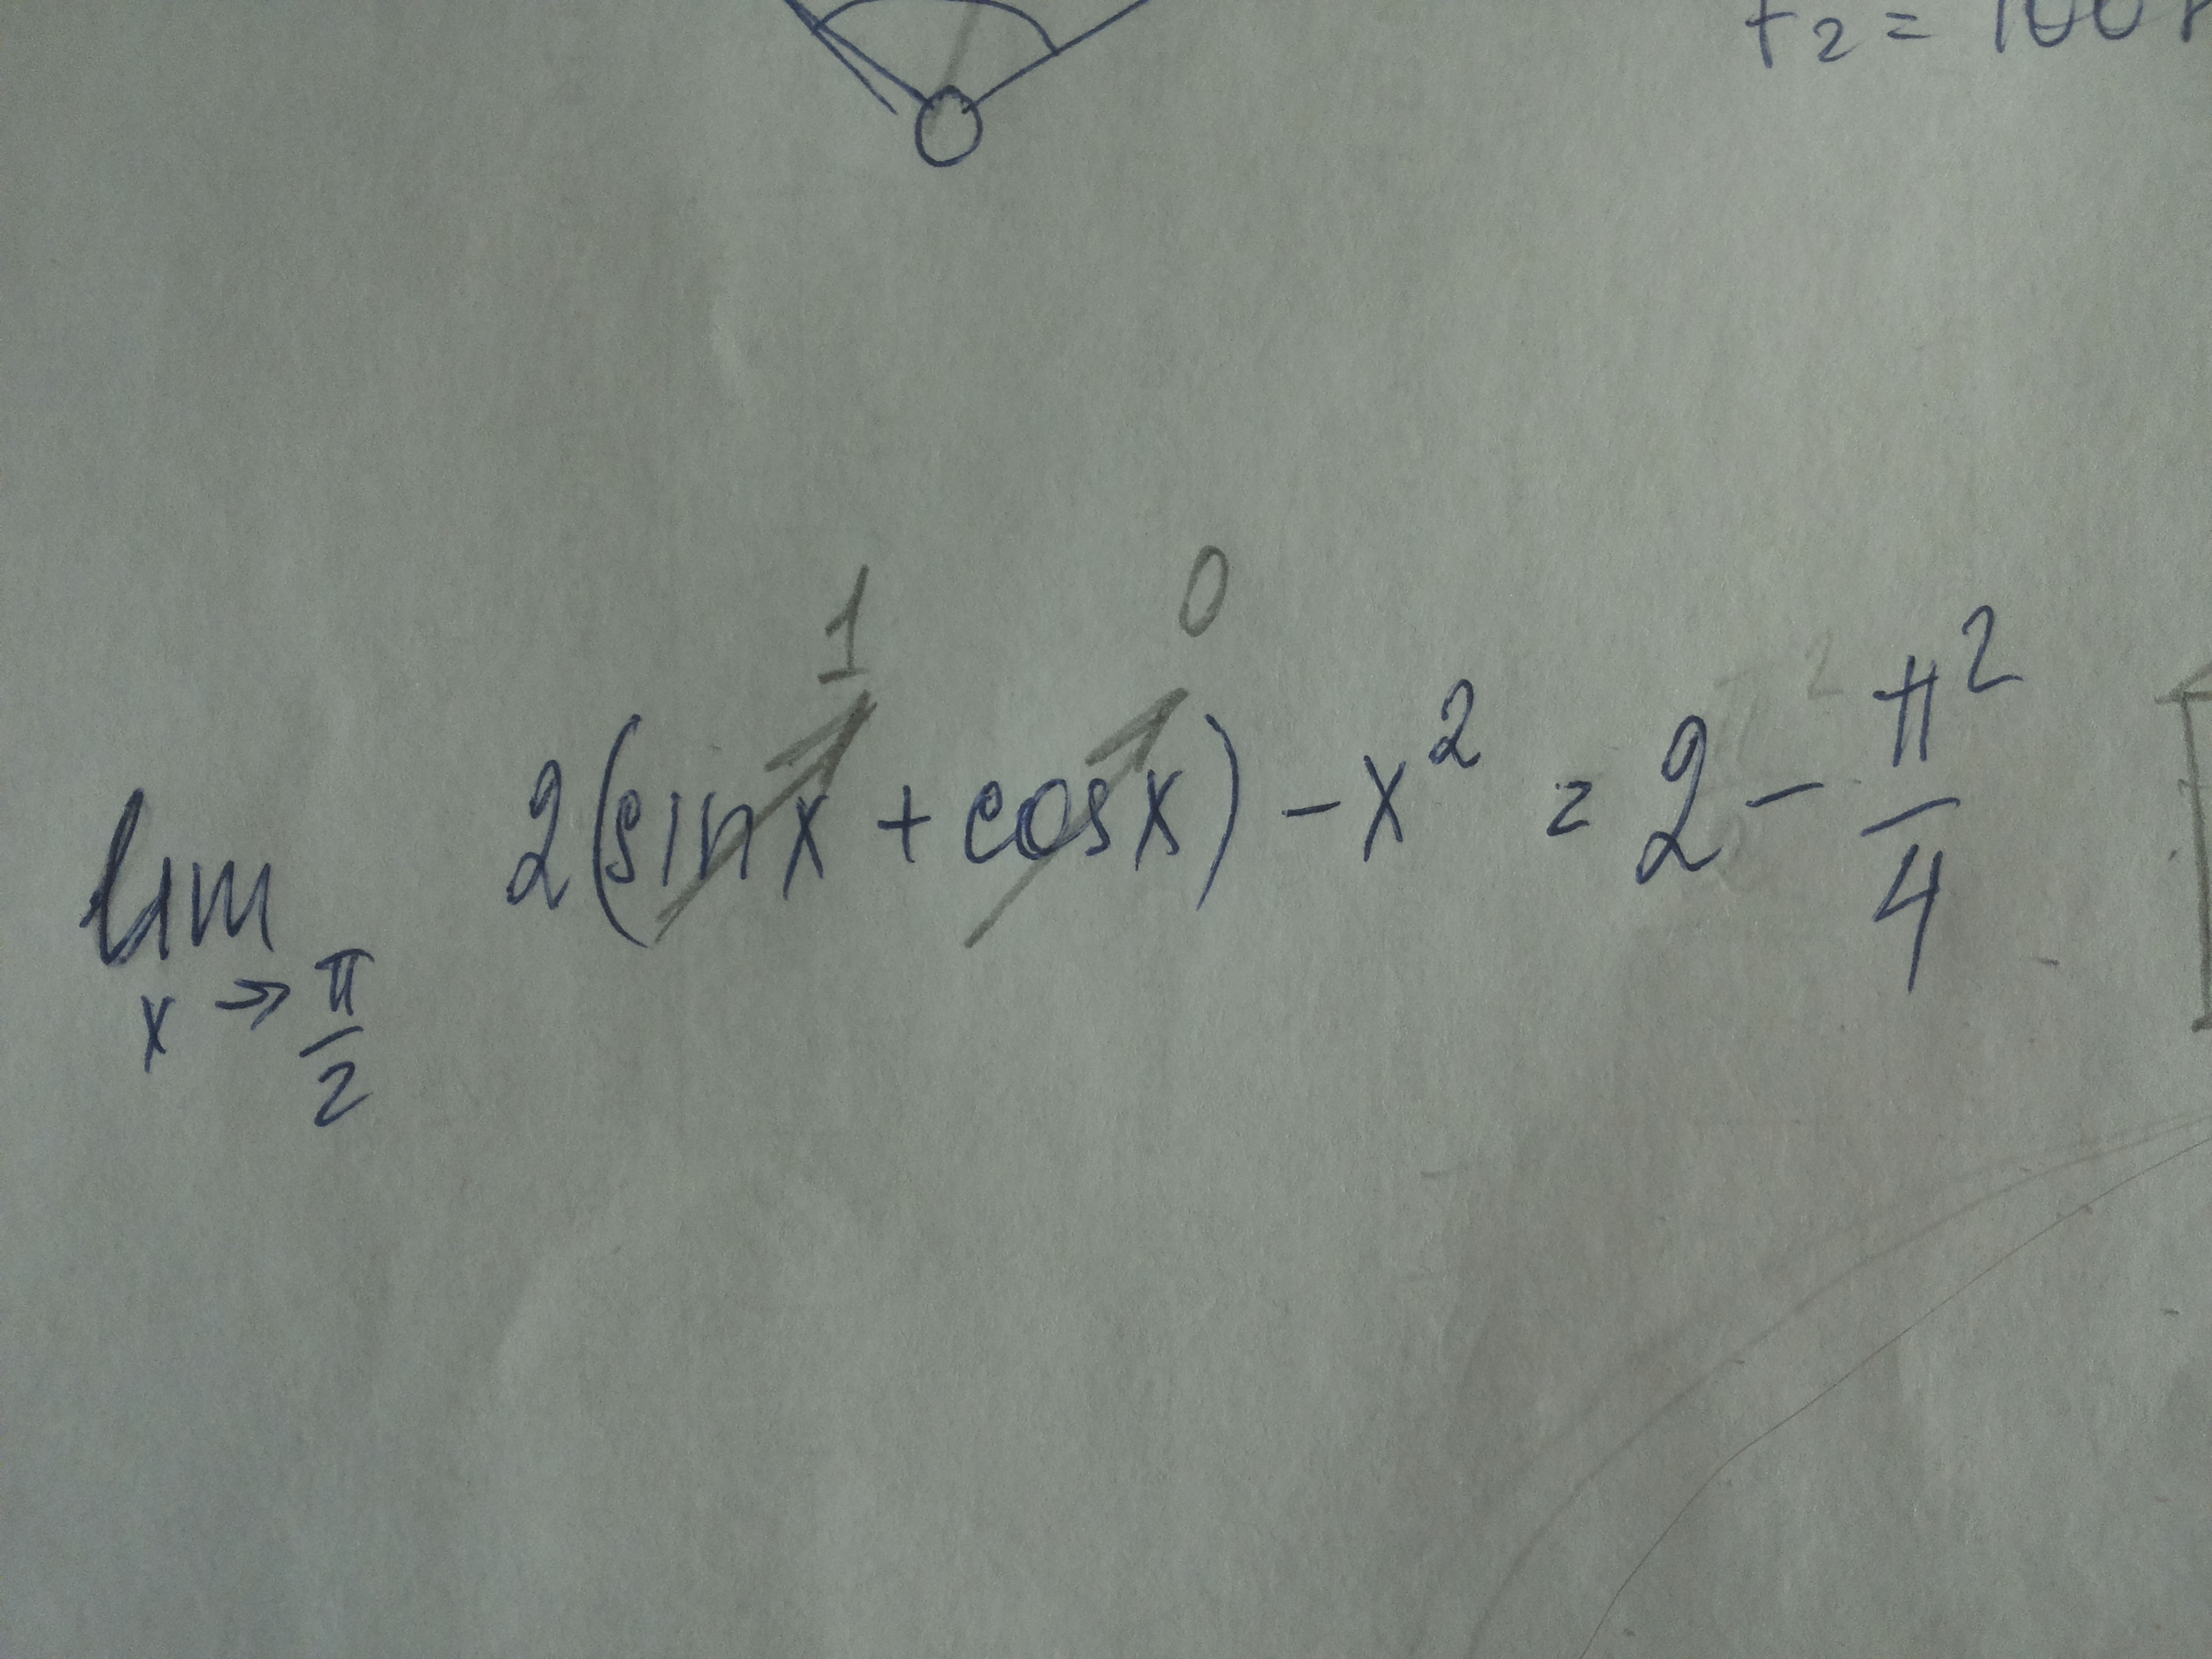 t₂ = 100
1 0
lim x→π/2 2(sin x + cos x) − x² = 2 − π²/4